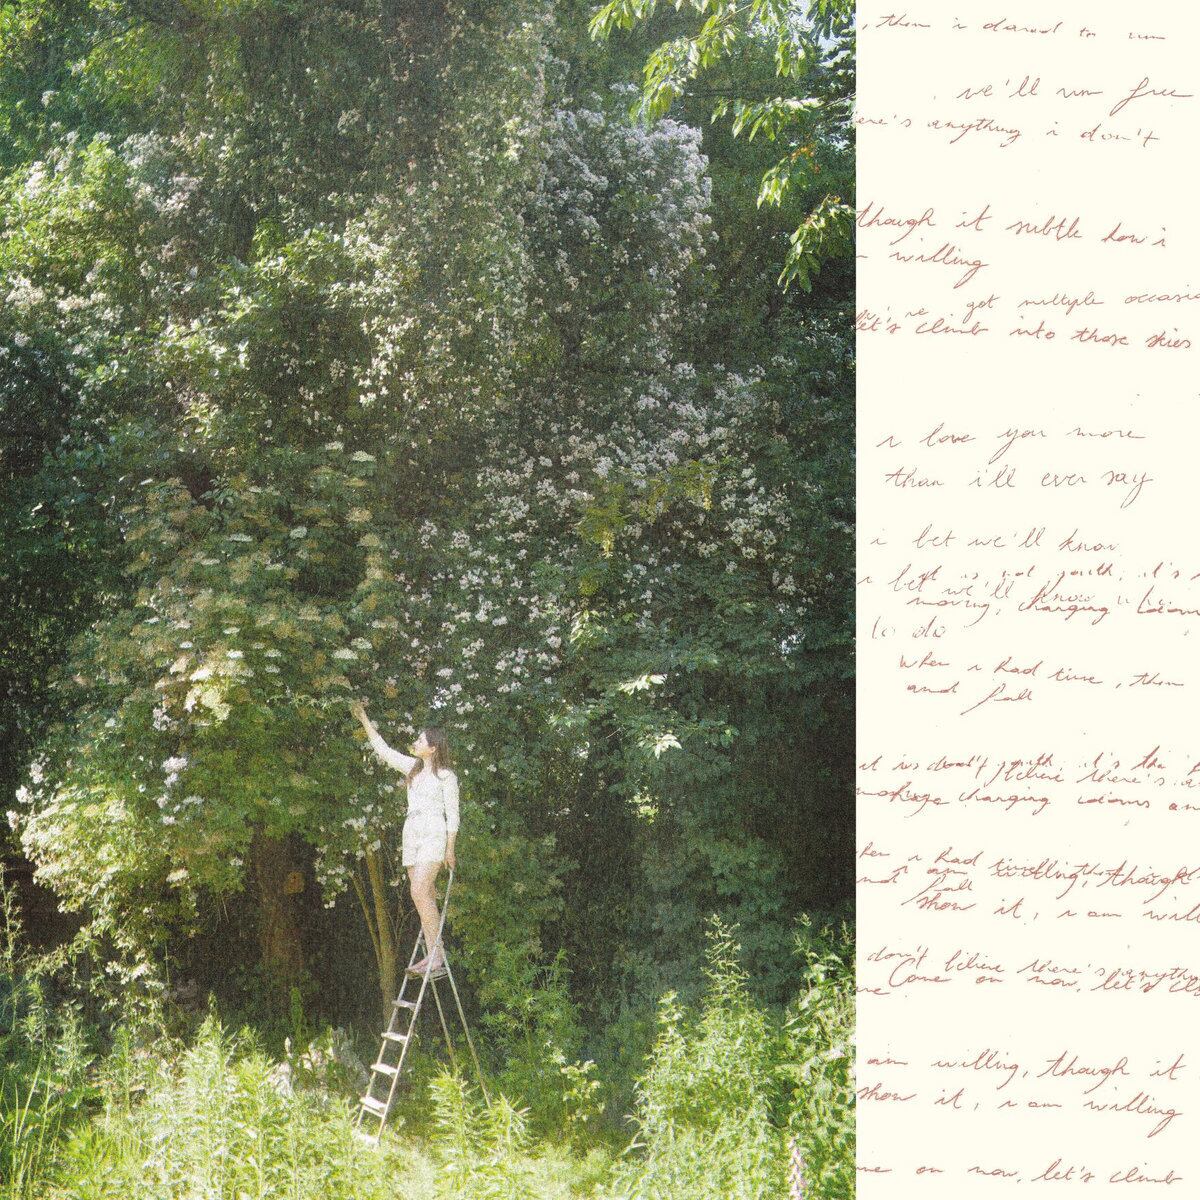 , then i dared to run
we'll run free
ere's anything i don't
though it subtle how i
willing
we've got multiple occasio
let's climb into those skies
i love you more
than i'll ever say
i bet we'll know
it is not youth, it's
i bet we'll know
moving, changing
to do
when i had time, then
and fall
it is youth, it's the
believe there's a
changing idioms an
hen i had
am willing, though
nd fall
show it, i am will
don't believe there's anythin
Come on now, let's cli
me
am willing, though it
show it, i am willing
me on now, let's climb